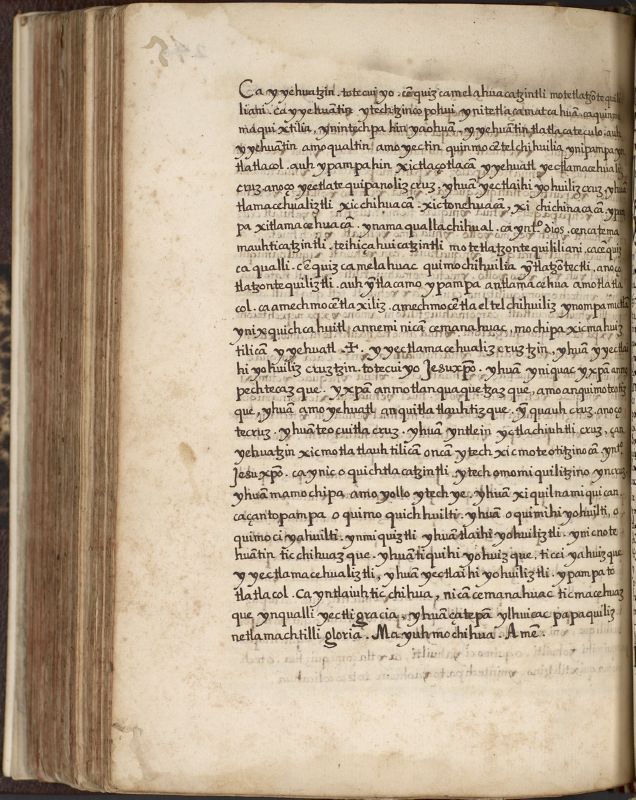 Ca y yehuatzin. totecuiyo. cēquizcamelahuacatzintli motetlatzōtequili
liani. ca y yehuātin ytechtzinco pohui ynitetlacamatcahuā. caquinmo
maquixtilia, ynintechpa hin yaohuā. yyehuātin tlatlacateculo. auh
yyehuātin amo qualtin amo yectin quinmocētelchihuilia ynipampa yn
tlatlacol. auh ypampa hin xictlaçotlacā yyehuatl yectlamacehualiz
cruz anoço yectlatequipanoliz cruz. yhuā yectlaihiyohuiliz cruz, yhuā
tlamacehualiztli xicchihuacā. xictonehuacā, xichichinacacā, ypam
pa xitlamacehuacā. yn amaquallachihual. ca ynt.º dios. cenca tema
mauhticatzintli. teihiçahuicatzintli motetlatzontequililiani. cacēquiz
ca qualli. cēquizcamelahuac quimochihuilia ytlatzōtectli, anoço
tlatzontequiliztli. auh ytlacamo ypampa antlamacehua amotlatla
col. ca amechmocētlaxiliz. amechmocētlaeltelchihuiliz ynompa mictlā
ynixquichcahuitl, annemi nicā cemanahuac, mochipa xicmahuiz
tilicā yyehuatl ✝. yyectlamacehualiz cruztzin, yhuā yyectlai
hiyohuiliz cruztzin. totecuiyo Jesuxpō. yhuā yniquac yxpā anmo
pechtecazque. yxpā anmotlanquaquetzazque, amo anquimoteotiz
que, yhuā amo yehuatl anquitlatlauhtizque. yn quauhcruz. anoço
tecruz. yhuā teocuitlacruz. yhuā yntlein yc tlachiuhtli cruz, çan
yehuatzin xicmotlatlauhtilicā oncā ytech xicmoteotitzinocā. ynt.º
Jesuxpō. ca ynic oquichtlacatzintli. ytech omomiquilitzino yn cruz.
yhuā ma mochipa. amoyollo ytech ye. yhuā xiquilnamiquican.
caçantopampa oquimoquichhuilti. yhuā oquimihiyohuilti, o
quimociyahuilti. ynmiquiztli yhuā tlaihiyohuiliztli. ynicnote
huātin ticchihuazque. yhuā tiquihiyohuizque. ticciyahuizque
yyectlamacehualiztli, yhuā yectlaihiyohuiliztli. ypampa to
tlatlacol. Ca yntlaiuh ticchihua, nicā cemanahuac ticmacehuaz
que, ynqualli yectli gracia, yhuā catepā ylhuicac papaquiliz
netlamachtilli gloria. Ma yuh mochihua. Amē.